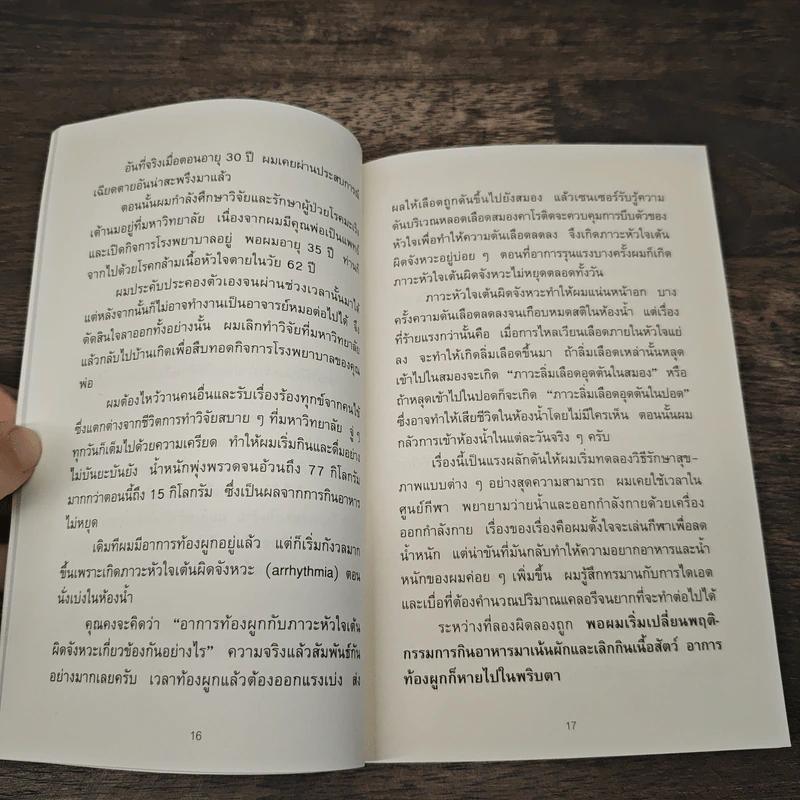 อันที่จริงเมื่อตอนอายุ 30 ปี ผมเคยผ่านประสบการณ์
เฉียดตายอันน่าสะพรึงมาแล้ว
ตอนนั้นผมกำลังศึกษาวิจัยและรักษาผู้ป่วยโรคมะเร็ง
เต้านมอยู่ที่มหาวิทยาลัย เนื่องจากผมมีคุณพ่อเป็นแพทย์
และเปิดกิจการโรงพยาบาลอยู่ พอผมอายุ 35 ปี ท่านก็
จากไปด้วยโรคกล้ามเนื้อหัวใจตายในวัย 62 ปี
ผมประคับประคองตัวเองจนผ่านช่วงเวลานั้นมาได้
แต่หลังจากนั้นก็ไม่อาจทำงานเป็นอาจารย์หมอต่อไปได้ จึง
ตัดสินใจลาออกทั้งอย่างนั้น ผมเลิกทำวิจัยที่มหาวิทยาลัย
แล้วกลับไปบ้านเกิดเพื่อสืบทอดกิจการโรงพยาบาลของคุณ
พ่อ
ผมต้องไหว้วานคนอื่นและรับเรื่องร้องทุกข์จากคนไข้
ซึ่งแตกต่างจากชีวิตการทำวิจัยสบาย ๆ ที่มหาวิทยาลัย จู่ ๆ
ทุกวันก็เต็มไปด้วยความเครียด ทำให้ผมเริ่มกินและดื่มอย่าง
ไม่บันยะบันยัง น้ำหนักพุ่งพรวดจนอ้วนถึง 77 กิโลกรัม
มากกว่าตอนนี้ถึง 15 กิโลกรัม ซึ่งเป็นผลจากการกินอาหาร
ไม่หยุด
เดิมทีผมมีอาการท้องผูกอยู่แล้ว แต่ก็เริ่มกังวลมาก
ขึ้นเพราะเกิดภาวะหัวใจเต้นผิดจังหวะ (arrhythmia) ตอน
นั่งเบ่งในห้องน้ำ
คุณคงจะคิดว่า “อาการท้องผูกกับภาวะหัวใจเต้น
ผิดจังหวะเกี่ยวข้องกันอย่างไร” ความจริงแล้วสัมพันธ์กัน
อย่างมากเลยครับ เวลาท้องผูกแล้วต้องออกแรงเบ่ง ส่ง
16
ผลให้เลือดถูกดันขึ้นไปยังสมอง แล้วเซนเซอร์รับรู้ความ
ดันบริเวณหลอดเลือดสมองคาโรติดจะควบคุมการบีบตัวของ
หัวใจเพื่อทำให้ความดันเลือดลดลง จึงเกิดภาวะหัวใจเต้น
ผิดจังหวะอยู่บ่อย ๆ ตอนที่อาการรุนแรงบางครั้งผมก็เกิด
ภาวะหัวใจเต้นผิดจังหวะไม่หยุดตลอดทั้งวัน
ภาวะหัวใจเต้นผิดจังหวะทำให้ผมแน่นหน้าอก บาง
ครั้งความดันเลือดลดลงจนเกือบหมดสติในห้องน้ำ แต่เรื่อง
ที่ร้ายแรงกว่านั้นคือ เมื่อการไหลเวียนเลือดภายในหัวใจแย่
ลง จะทำให้เกิดลิ่มเลือดขึ้นมา ถ้าลิ่มเลือดเหล่านั้นหลุด
เข้าไปในสมองจะเกิด “ภาวะลิ่มเลือดอุดตันในสมอง” หรือ
ถ้าหลุดเข้าไปในปอดก็จะเกิด “ภาวะลิ่มเลือดอุดตันในปอด”
ซึ่งอาจทำให้เสียชีวิตในห้องน้ำโดยไม่มีใครเห็น ตอนนั้นผม
กลัวการเข้าห้องน้ำในแต่ละวันจริง ๆ ครับ
เรื่องนี้เป็นแรงผลักดันให้ผมเริ่มทดลองวิธีรักษาสุข-
ภาพแบบต่าง ๆ อย่างสุดความสามารถ ผมเคยใช้เวลาใน
ศูนย์กีฬา พยายามว่ายน้ำและออกกำลังกายด้วยเครื่อง
ออกกำลังกาย เรื่องของเรื่องคือผมตั้งใจจะเล่นกีฬาเพื่อลด
น้ำหนัก แต่น่าขันที่มันกลับทำให้ความอยากอาหารและน้ำ
หนักของผมค่อย ๆ เพิ่มขึ้น ผมรู้สึกทรมานกับการไดเอต
และเบื่อที่ต้องคำนวณปริมาณแคลอรีจนยากที่จะทำต่อไปได้
ระหว่างที่ลองผิดลองถูก พอผมเริ่มเปลี่ยนพฤติ-
กรรมการกินอาหารมาเน้นผักและเลิกกินเนื้อสัตว์ อาการ
ท้องผูกก็หายไปในพริบตา
17